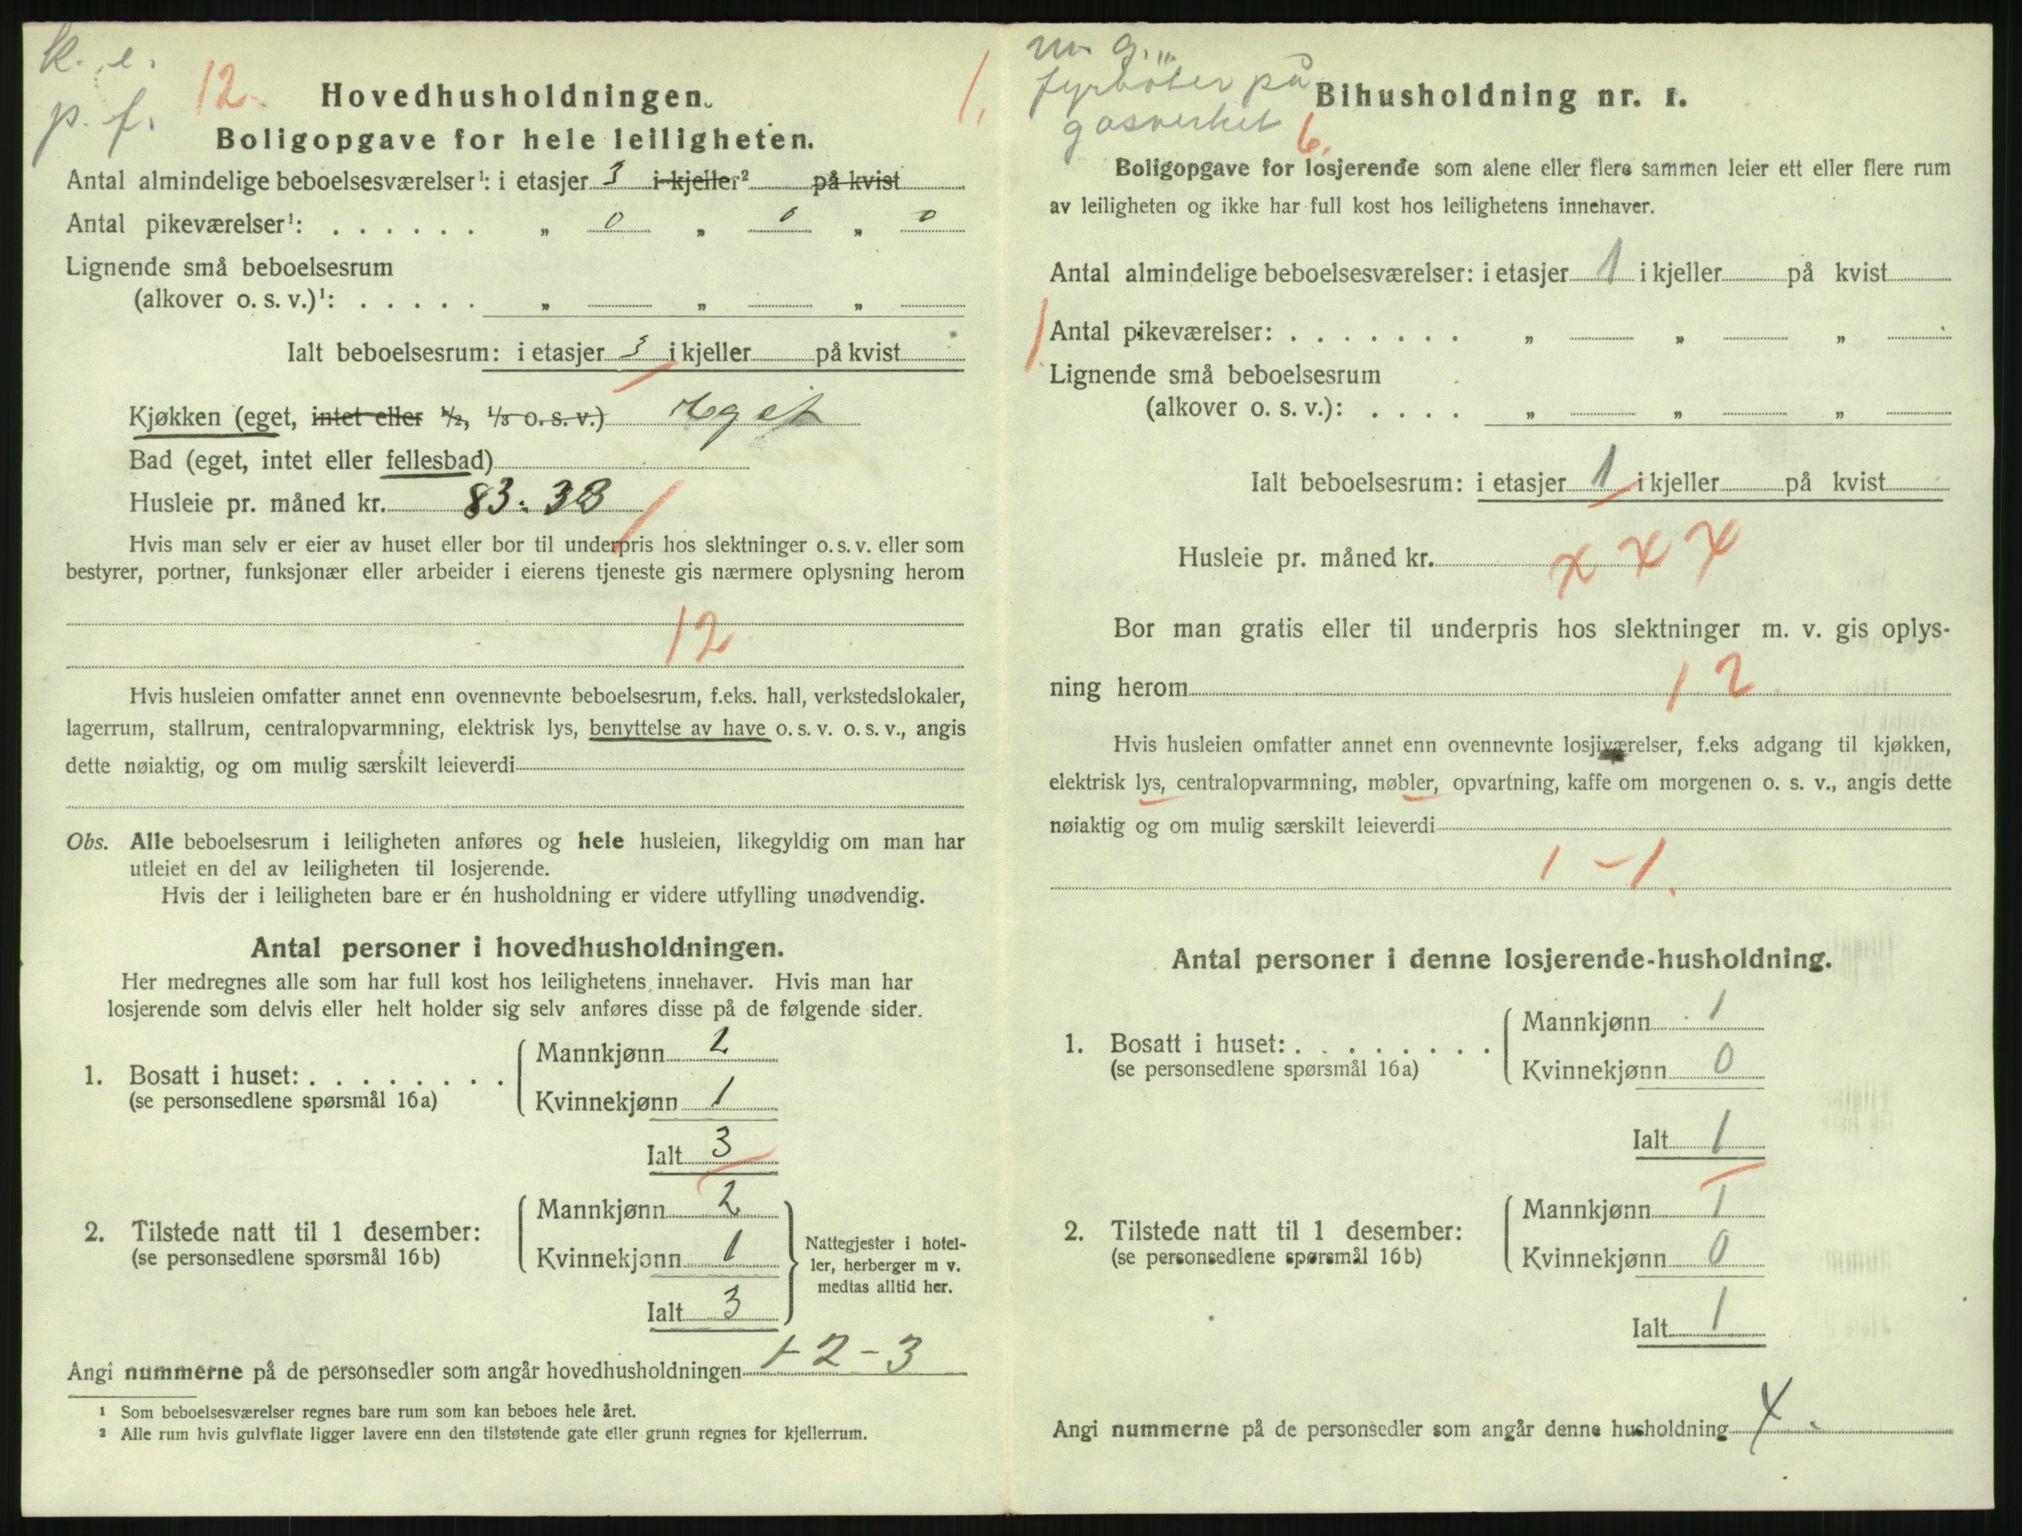 k. e.
p. f.
12.
Hovedhusholdningen.
Boligopgave for hele leiligheten.
Antal almindelige beboelsesværelser¹: i etasjer 3 i kjeller² på kvist
Antal pikeværelser¹: . . . . . . „ 0 „ 0 „ 0
Lignende små beboelsesrum
(alkover o. s. v.)¹: . . . . . „ „ „
Ialt beboelsesrum: i etasjer 3 i kjeller på kvist
Kjøkken (eget, intet eller ½, ⅓ o. s. v.) Eget
Bad (eget, intet eller fellesbad)
Husleie pr. måned kr. 83.38
Hvis man selv er eier av huset eller bor til underpris hos slektninger o. s. v. eller som
bestyrer, portner, funksjonær eller arbeider i eierens tjeneste gis nærmere oplysning herom
12
Hvis husleien omfatter annet enn ovennevnte beboelsesrum, f.eks. hall, verkstedslokaler,
lagerrum, stallrum, centralopvarmning, elektrisk lys, benyttelse av have o. s. v. o. s. v., angis
dette nøiaktig, og om mulig særskilt leieverdi
Obs. Alle beboelsesrum i leiligheten anføres og hele husleien, likegyldig om man har
utleiet en del av leiligheten til losjerende.
Hvis der i leiligheten bare er én husholdning er videre utfylling unødvendig.
Antal personer i hovedhusholdningen.
Her medregnes alle som har full kost hos leilighetens innehaver. Hvis man har
losjerende som delvis eller helt holder sig selv anføres disse på de følgende sider.
Mannkjønn 2
1. Bosatt i huset: . . . . . . . .
(se personsedlene spørsmål 16a)
Kvinnekjønn 1
Ialt 3
Mannkjønn 2
2. Tilstede natt til 1 desember:
(se personsedlene spørsmål 16b)
Kvinnekjønn 1
Ialt 3
Nattegjester i hotel-
ler, herberger m v.
medtas alltid her.
Angi nummerne på de personsedler som angår hovedhusholdningen 1-2-3
¹ Som beboelsesværelser regnes bare rum som kan beboes hele året.
² Alle rum hvis gulvflate ligger lavere enn den tilstøtende gate eller grunn regnes for kjellerrum.
1.
m. g.
fyrbøter på
gasverket
6.
Bihusholdning nr. 1.
Boligopgave for losjerende som alene eller flere sammen leier ett eller flere rum
av leiligheten og ikke har full kost hos leilighetens innehaver.
Antal almindelige beboelsesværelser: i etasjer 1 i kjeller på kvist
1.
Antal pikeværelser: . . . . . . . „ „ „
Lignende små beboelsesrum
(alkover o. s. v.): . . . . „ „ „
Ialt beboelsesrum: i etasjer 1 i kjeller på kvist
Husleie pr. måned kr. x x x
Bor man gratis eller til underpris hos slektninger m. v. gis oplys-
ning herom 12.
Hvis husleien omfatter annet enn ovennevnte losjiværelser, f.eks adgang til kjøkken,
elektrisk lys, centralopvarmning, møbler, opvartning, kaffe om morgenen o. s. v., angis dette
nøiaktig og om mulig særskilt leieverdi
1 - 1.
Antal personer i denne losjerende-husholdning.
Mannkjønn 1
1. Bosatt i huset: . . . . . . . .
(se personsedlene spørsmål 16a)
Kvinnekjønn 0
Ialt 1
Mannkjønn 1
2. Tilstede natt til 1 desember:
(se personsedlene spørsmål 16b)
Kvinnekjønn 0
Ialt 1
Angi nummerne på de personsedler som angår denne husholdning 4.